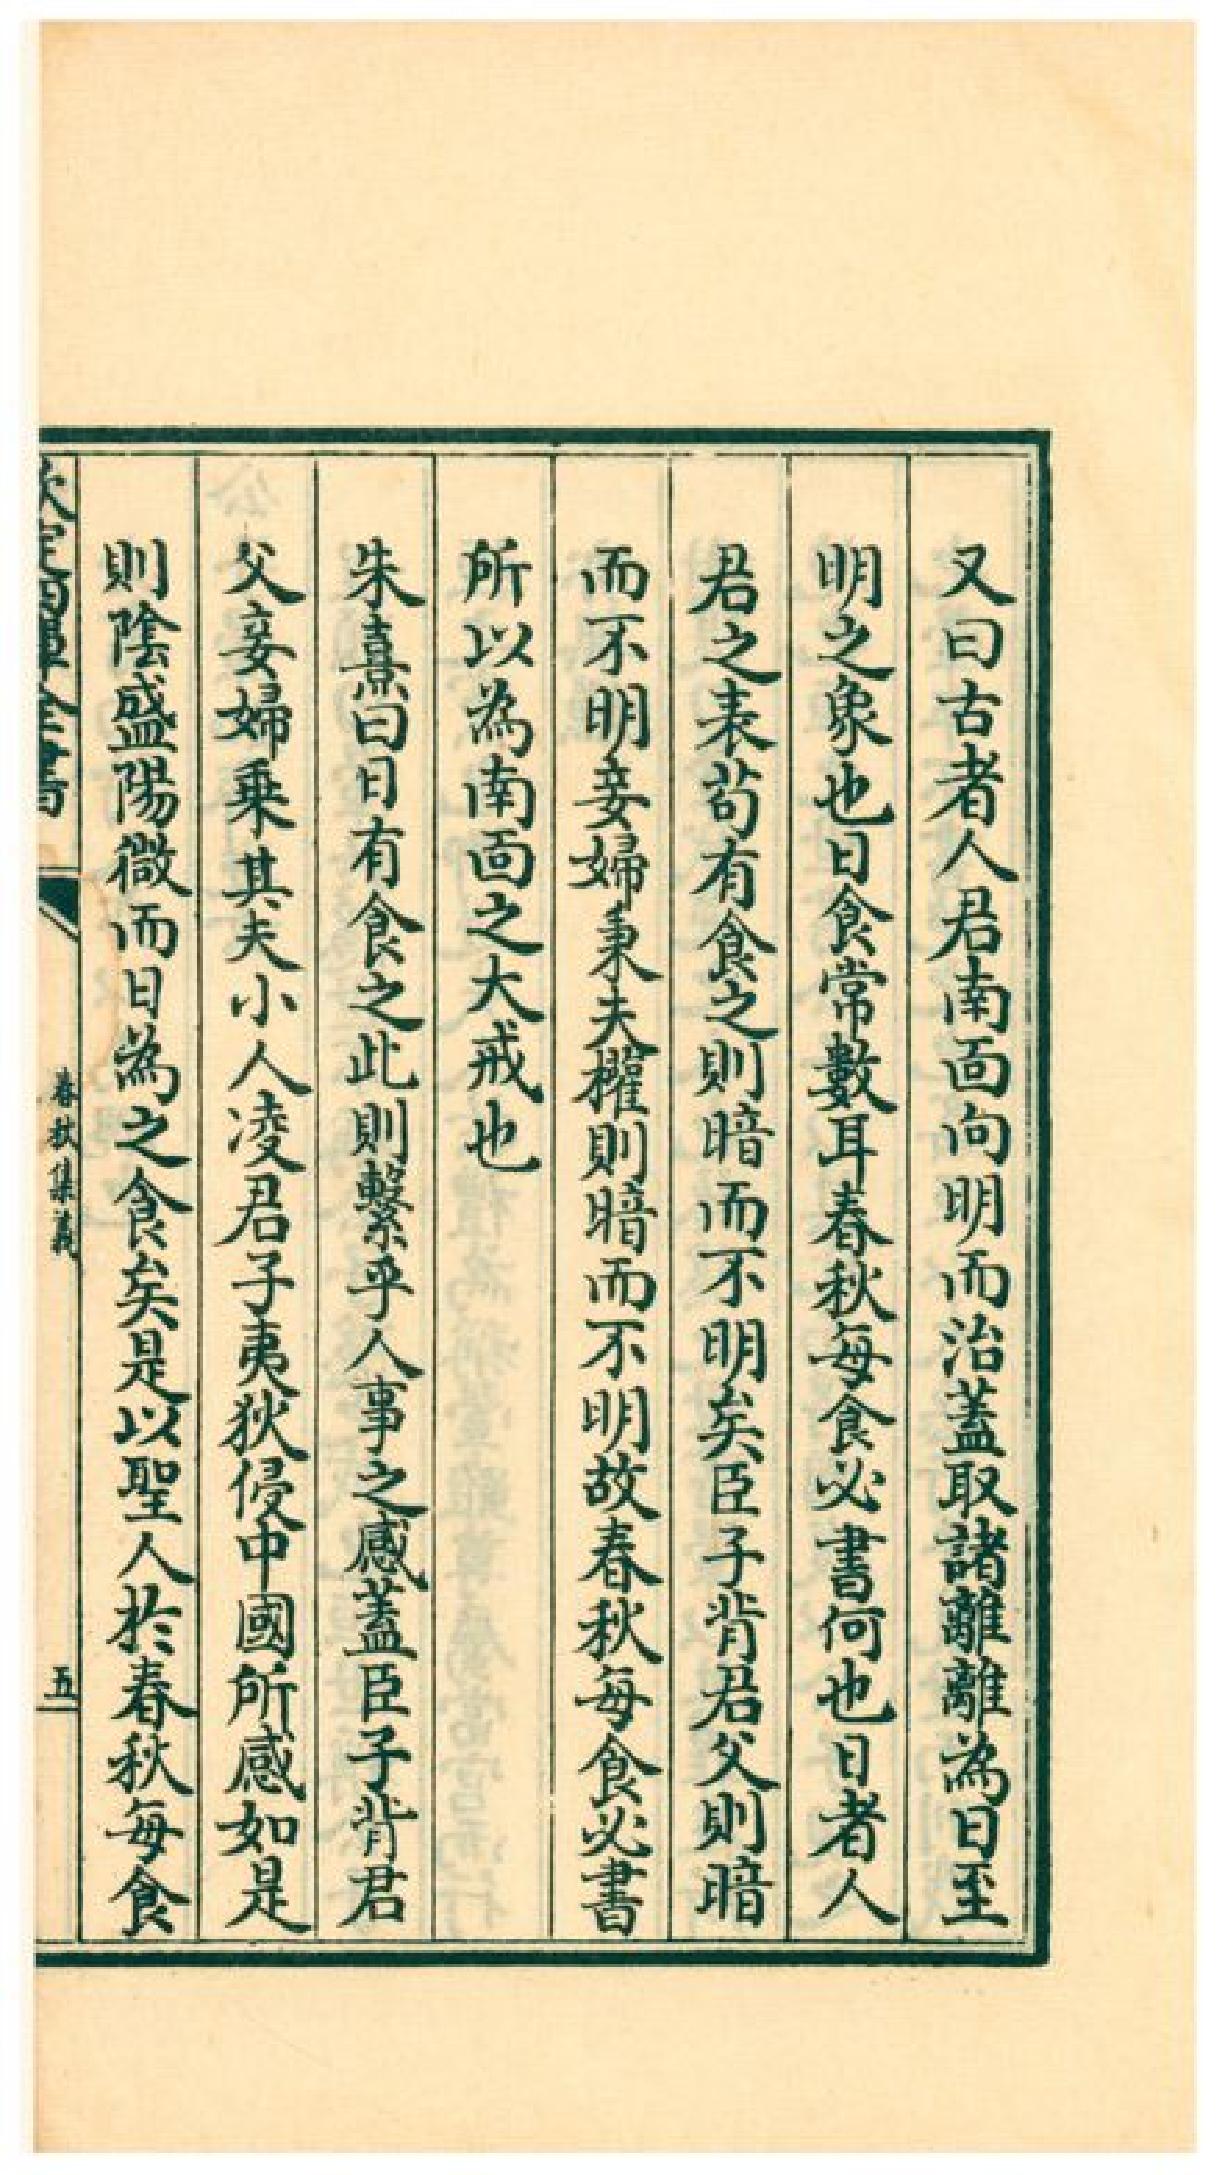 又曰古者人君南面向明而治蓋取諸離離為日至
明之象也日食常數耳春秋每食必書何也日者人
君之表茍有食之則暗而不明矣臣子背君父則暗
而不明妾婦秉夫權則暗而不明故春秋每食必書
所以為南面之大戒也
朱熹曰日有食之此則繫乎人事之感蓋臣子背君
父妾婦乗其夫小人凌君子夷狄侵中國所感如是
則陰盛陽微而日為之食矣是以聖人於春秋每食
欽定四庫全書
春秋集義
五